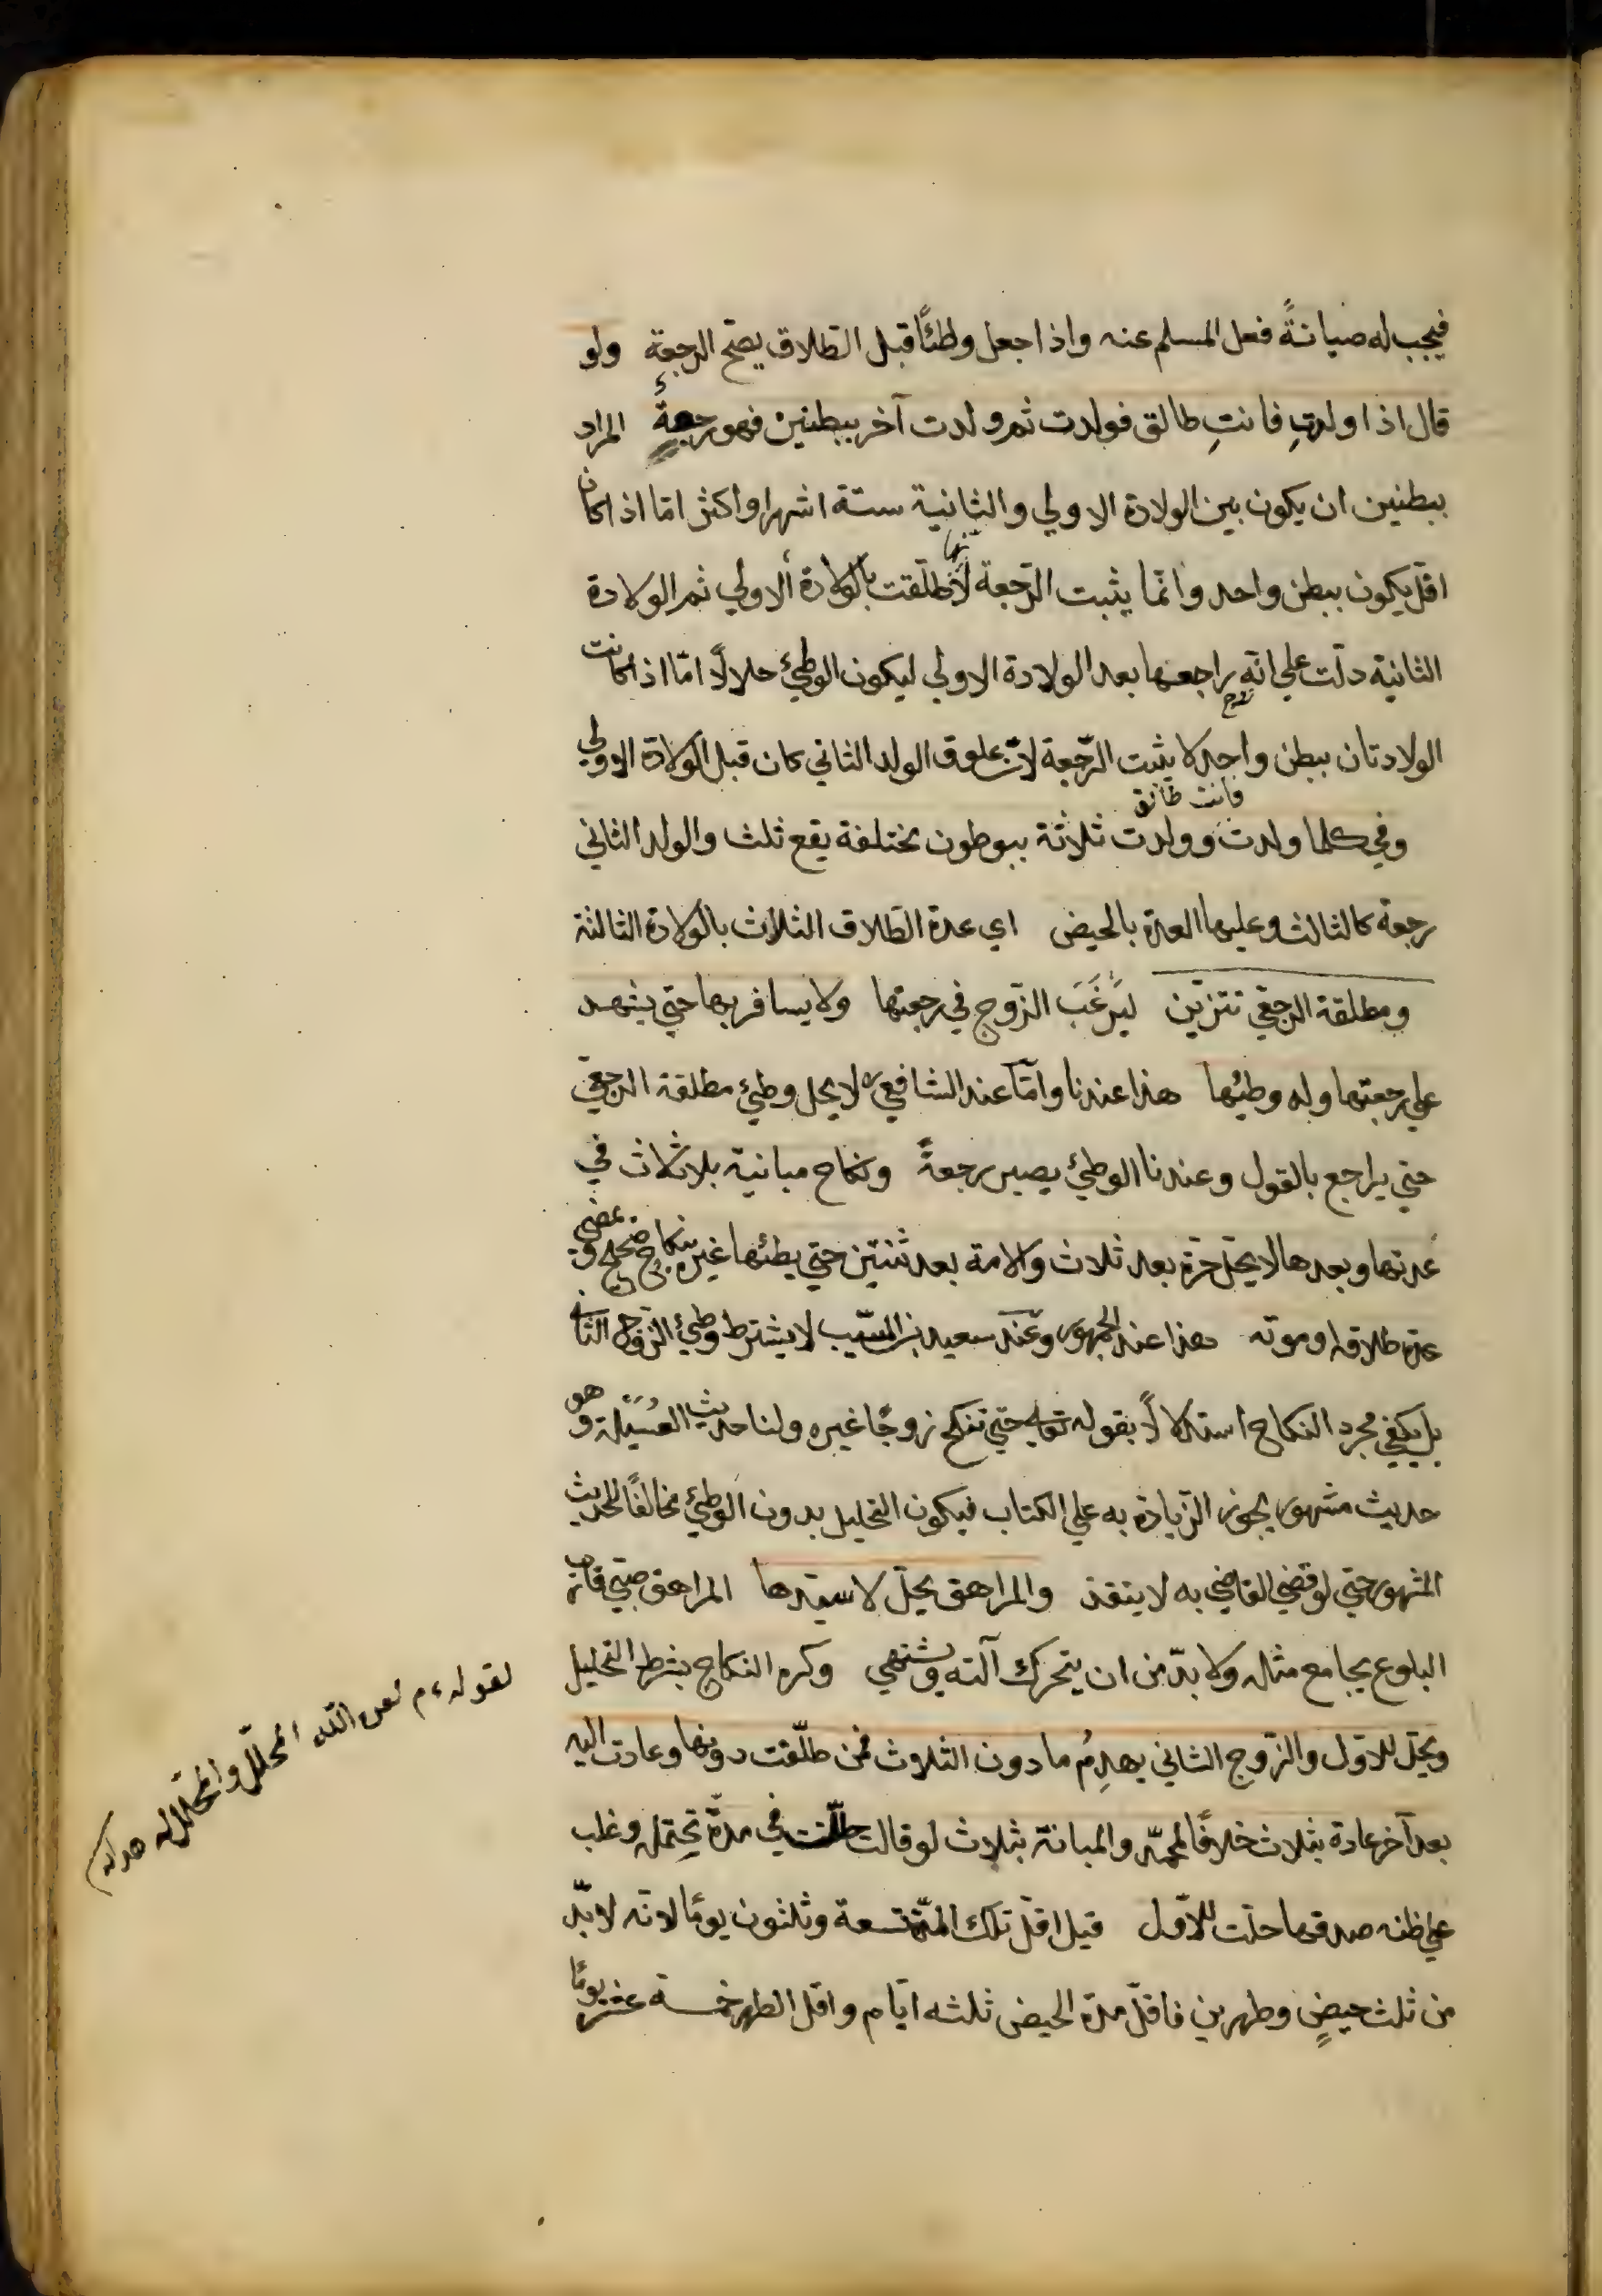 فيجب له صيانةً فعل المسلم عنه واذا جعل وطئًا قبل الطّلاق يصحّ الرجعة ولو
قال اذا ولدتِ فانتِ طالق فولدت ثم ولدت آخر ببطنين فهو رجعةٌ المراد
ببطنين ان يكون بين الولادة الاولي والثانية ستة اشهر او اكثر امّا اذا كان
اقلّ يكون ببطن واحد وانّما يثبت الرّجعة لانّها طلّقت بالولادة الاولي ثم الولادة
الثانية دلّت علي انّه راجعها بعد الولادة الاولي ليكون الوطئ حلالًا امّا اذا كانت
الولادتان ببطن واحد لا يثبت الرّجعة لانّ علوق الولد الثاني كان قبل الولادة الاولي
وفي كلما ولدت فانت طالق وولدت ثلاثة ببوطون مختلفة يقع ثلث والولد الثاني
رجعة كالثالث وعليها العدة بالحيض اي عدة الطّلاق الثلاث بالولادة الثالثة
ومطلقة الرجعي تتزيّن ليَرْغَبَ الزّوج في رجعتها ولا يسافر بها حتي يشهد
علي رجعتها وله وطيُها هذا عندنا وامّا عند الشافعي لا يحل وطئ مطلقة الرجعي
حتي يراجع بالقول وعندنا الوطئ يصير رجعةً ونكاح مبانية بلا ثلاث في
عدتها وبعدها لا يحلّ حرة بعد ثلاث والامة بعد ثنتين حتي يطئها غيره بنكاح صحيح وتمضي
عدة طلاقه او موته هذا عند الجمهور وعند سعيد بن المسّيب لا يشترط وطئ الزّوج الثاني
بل يكفي مجرد النكاح استدلالًا بقوله تعالي حتي تنكح زوجًا غيره ولنا حديث العُسَيْلَة وهو
حديث مشهور يجوز الزّيادة به علي الكتاب فيكون التحليل بدون الوطئ مخالفًا للحديث
المشهور حتي لو قضي القاضي به لا ينفذ والمراهق يحلّ لا سيّدها المراهق صبي قارب
البلوغ يجامع مثله ولا بدّ من ان يتحرك آلته ويشتهي وكره النكاح بشرط التحليل
ويحلّ للاوّل والزّوج الثاني يهدِمُ ما دون الثلاث فمن طلّقت دونها وعادت اليه
بعد آخر عادة بثلاث خلافًا لمحمّد والمبانة بثلاث لو قالت حللت في مدّة تحتمله وغلب
علي ظنه صدقها حلّت للاّول قيل اقلّ تلك المدّة تسعة وثلثون يومًا لانّه لا بدّ
من ثلث حيضٍ وطهرين فاقلّ مدة الحيض ثلثه ايّام واقل الطهر خمسة عشر يومًا
لقوله ءم لعن اللّه المحلّل والمحلّل له هدايه